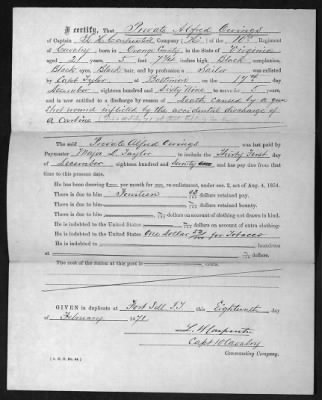 I certify, That Private Alfred Owings
of Captain L. H. Carpenter's Company (H.) 10th Regiment
of Cavalry born in Orange County, in the State of Virginia
aged 21 years, 5 feet 7¾ inches high, Black complexion,
Black eyes, Black hair, and by profession a Sailor was enlisted
by Capt Tyler at Baltimore on the 17th day
December eighteen hundred and Sixty Nine to serve 5 years,
and is now entitled to a discharge by reason of death caused by a gun
shot wound inflicted by the accidental discharge of
a Carbine
The said Private Alfred Owings was last paid by
Paymaster Major L. Taylor to include the Thirty First day
of December eighteen hundred and Seventy and has pay due from that
time to this present date.
He has been drawing per month for on reënlistment, under sec. 2, act of Aug. 4, 1854.
There is due to him Fourteen dollars retained pay.
There is due to him dollars retained bounty.
There is due to him dollars on account of clothing not drawn in kind.
He is indebted to the United States dollars on account of extra clothing.
He is indebted to the United States One dollar for Tobacco
He is indebted to laundress
at dollars.
The cost of his ration at this post is
GIVEN in duplicate at Fort Sill I.T. this Eighteenth day
of February 1871
L. H. Carpenter
Capt 10 Cavalry
Commanding Company.